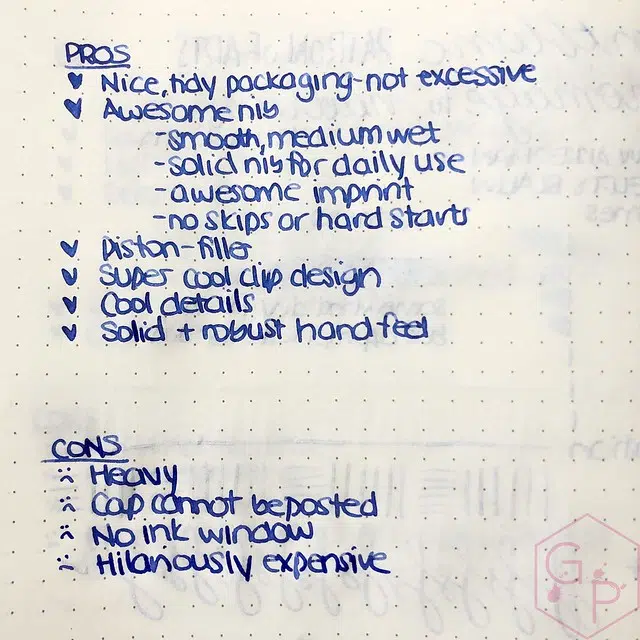 PROS
Nice, tidy packaging-not excessive
Awesome nib
-smooth, medium wet
-solid nib for daily use
-awesome imprint
-no skips or hard starts
Piston-filler
Super cool clip design
Cool details
Solid + robust hand feel
CONS
Heavy
Cap cannot be posted
No ink window
Hilariously expensive
G P